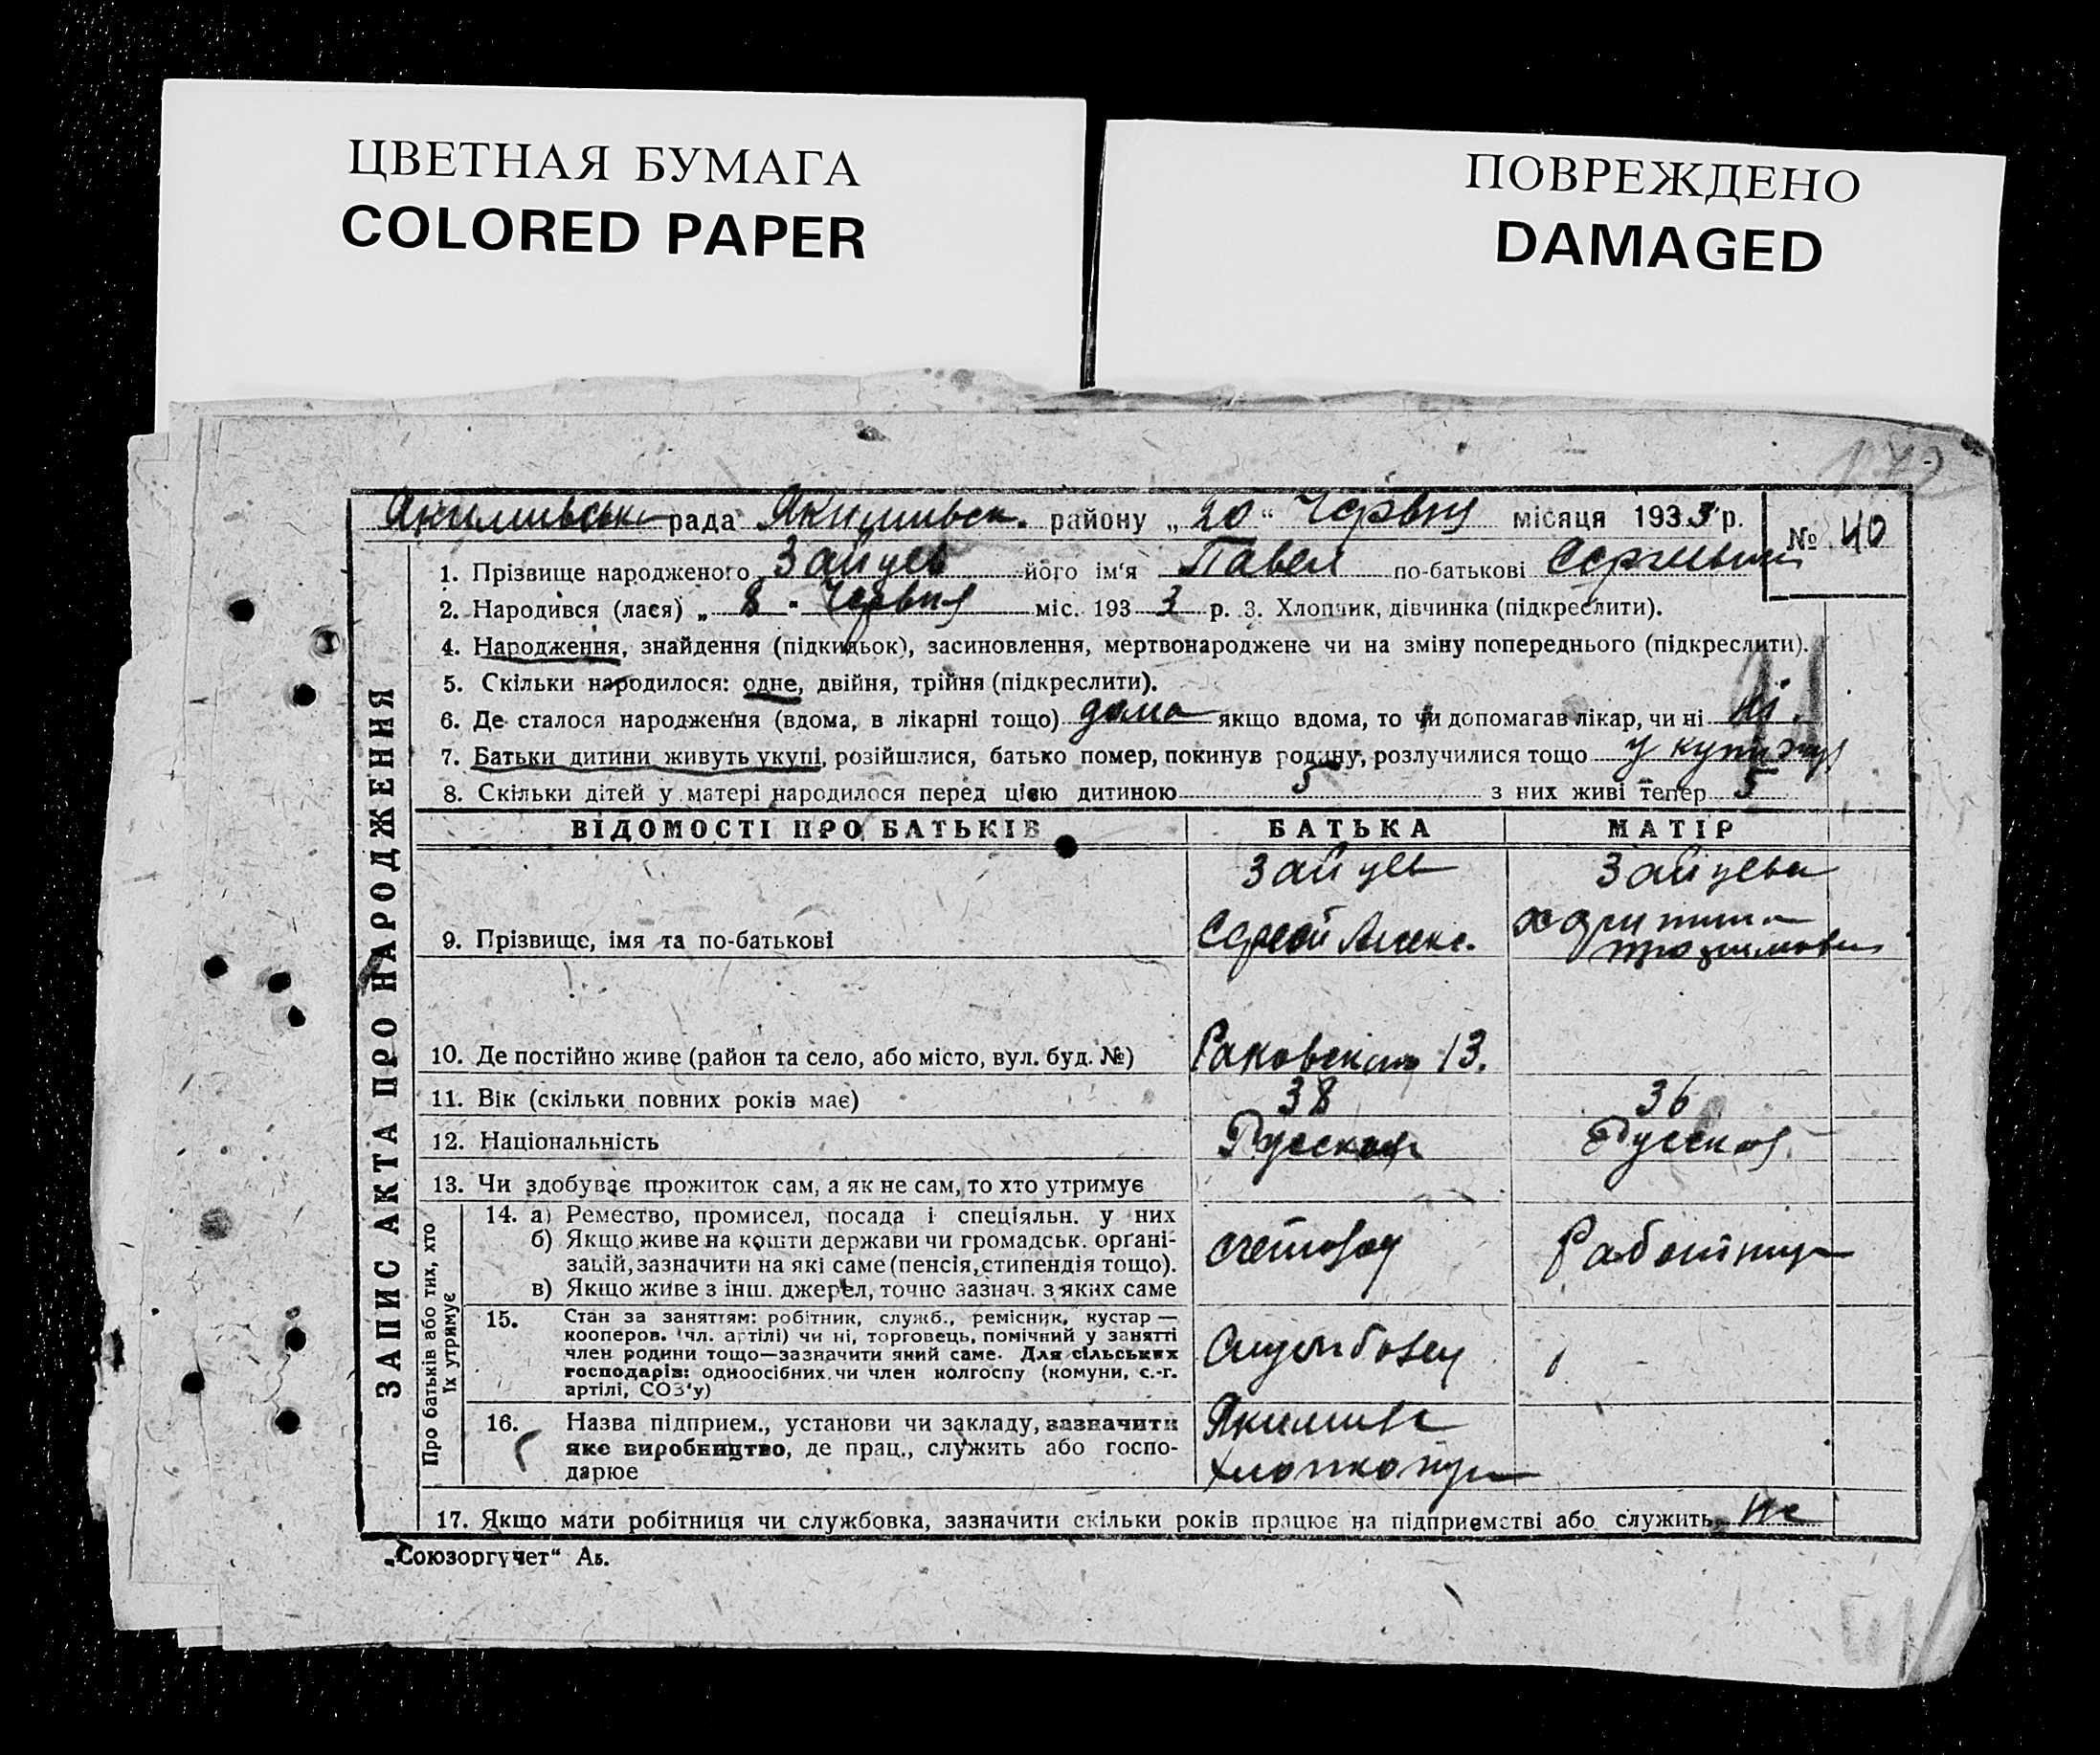 ЦВЕТНАЯ БУМАГА
COLORED PAPER
ПОВРЕЖДЕНО
DAMAGED
172
Якимивська рада Якимивск. району „20“ Червня місяця 1933 р.
№ 40
ЗАПИС АКТА ПРО НАРОДЖЕННЯ
1. Прізвище народженого Зайцев його ім'я Павел по-батькові
2. Народився (лася) „8" Червня міс. 1933 р. 3. Хлопчик, дівчинка (підкреслити).
4. Народження, знайдення (підкидьок), засиновлення, мертвонароджене чи на зміну попереднього (підкреслити).
5. Скільки народилося: одне, двійня, трійня (підкреслити).
6. Де сталося народження (вдома, в лікарні тощо) дома якщо вдома, то чи допомагав лікар, чи ні ні.
7. Батьки дитини живуть укупі, розійшлися, батько помер, покинув родину, розлучилися тощо
8. Скільки дітей у матері народилося перед цією дитиною 5 з них живі тепер 5
ВІДОМОСТІ ПРО БАТЬКІВ БАТЬКА МАТІР
Зайцев Зайцева
9. Прізвище, імя та по-батькові Сергей Алекс. Харитина
10. Де постійно живе (район та село, або місто, вул. буд. №) 13.
11. Вік (скільки повних років має) 38 36
12. Національність Русская Русская
13. Чи здобуває прожиток сам, а як не сам, то хто утримує
Про батьків або тих, хто
їх утримує
14. а) Ремество, промисел, посада і спеціяльн. у них
б) Якщо живе на кошти держави чи громадськ. орґані-
зацій, зазначити на які саме (пенсія, стипендія тощо).
в) Якщо живе з інш. джерел, точно зазнач. з яких саме
счетовод Работниця
15. Стан за заняттям: робітник, служб., ремісник, кустар —
кооперов. (чл. артілі) чи ні, торговець, помічний у занятті
член родини тощо—зазначити який саме. Для сільських
господарів: одноосібних чи член колгоспу (комуни, с.-г.
артілі, СОЗ'у)
16. Назва підприєм., установи чи закладу, зазначити
яке виробництво, де прац., служить або госпо-
дарює
17. Якщо мати робітниця чи службовка, зазначити скільки років працює на підприємстві або служить
„Союзоргучет“ Аб.